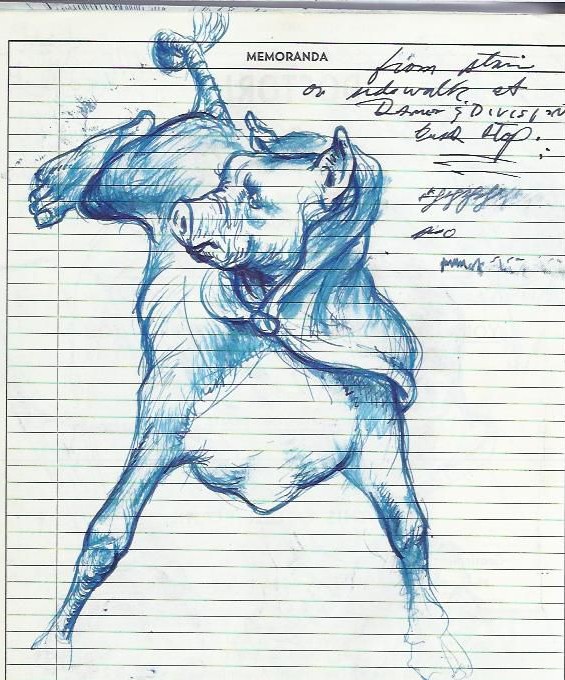 MEMORANDA
from stain
on sidewalk at
Damen & Division
bus stop.